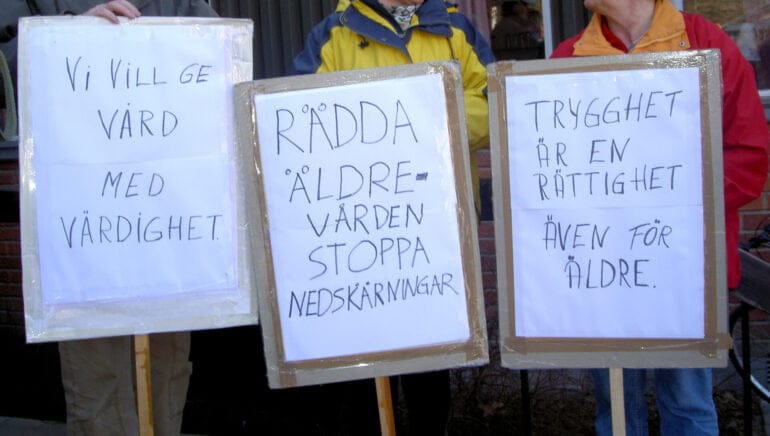 Vi VILL GE
VÅRD
MED
VÄRDIGHET.
RÄDDA
ÄLDRE-
VÅRDEN
STOPPA
NEDSKÄRNINGAR
TRYGGHET
ÄR EN
RÄTTIGHET
ÄVEN FÖR
ÄLDRE.